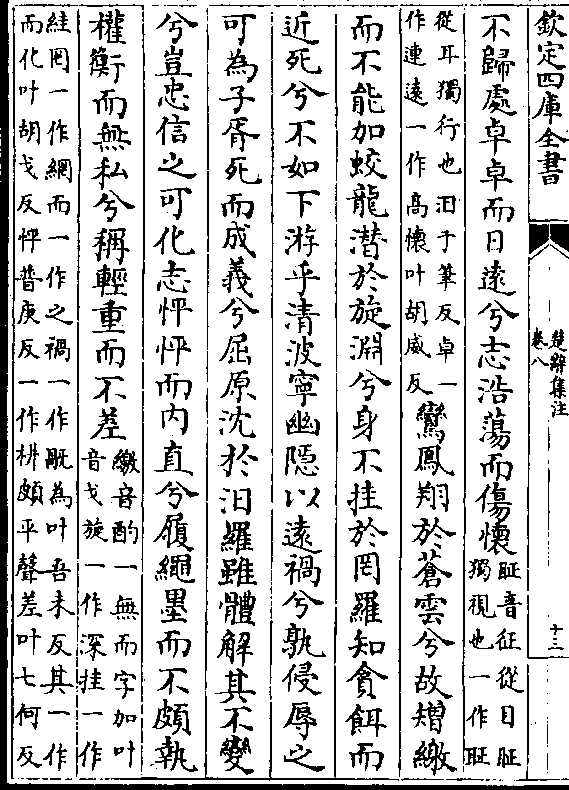 欽定四庫全書
楚辭集注
卷八
十三
不歸處卓卓而日遠兮志浩蕩而傷懷
眐音征從目眐
獨視也一作眐
從耳獨行也汩于筆反卓一
作連遠一作高懷叶胡威反
鸞鳳翔於蒼雲兮故矰繳
而不能加蛟龍潛於旋淵兮身不挂於罔羅知貪餌而
近死兮不如下游乎清波寧幽隱以遠禍兮孰侵辱之
可為子胥死而成義兮屈原沈於汨羅雖體解其不變
兮豈忠信之可化志怦怦而内直兮履繩墨而不頗執
權衡而無私兮稱輕重而不差
繳音酌一無而字加叶
音戈旋一作深挂一作
絓罔一作網而一作之禍一作旤為叶吾未反其一作
而化叶胡戈反怦普庚反一作頗平聲差叶七何反